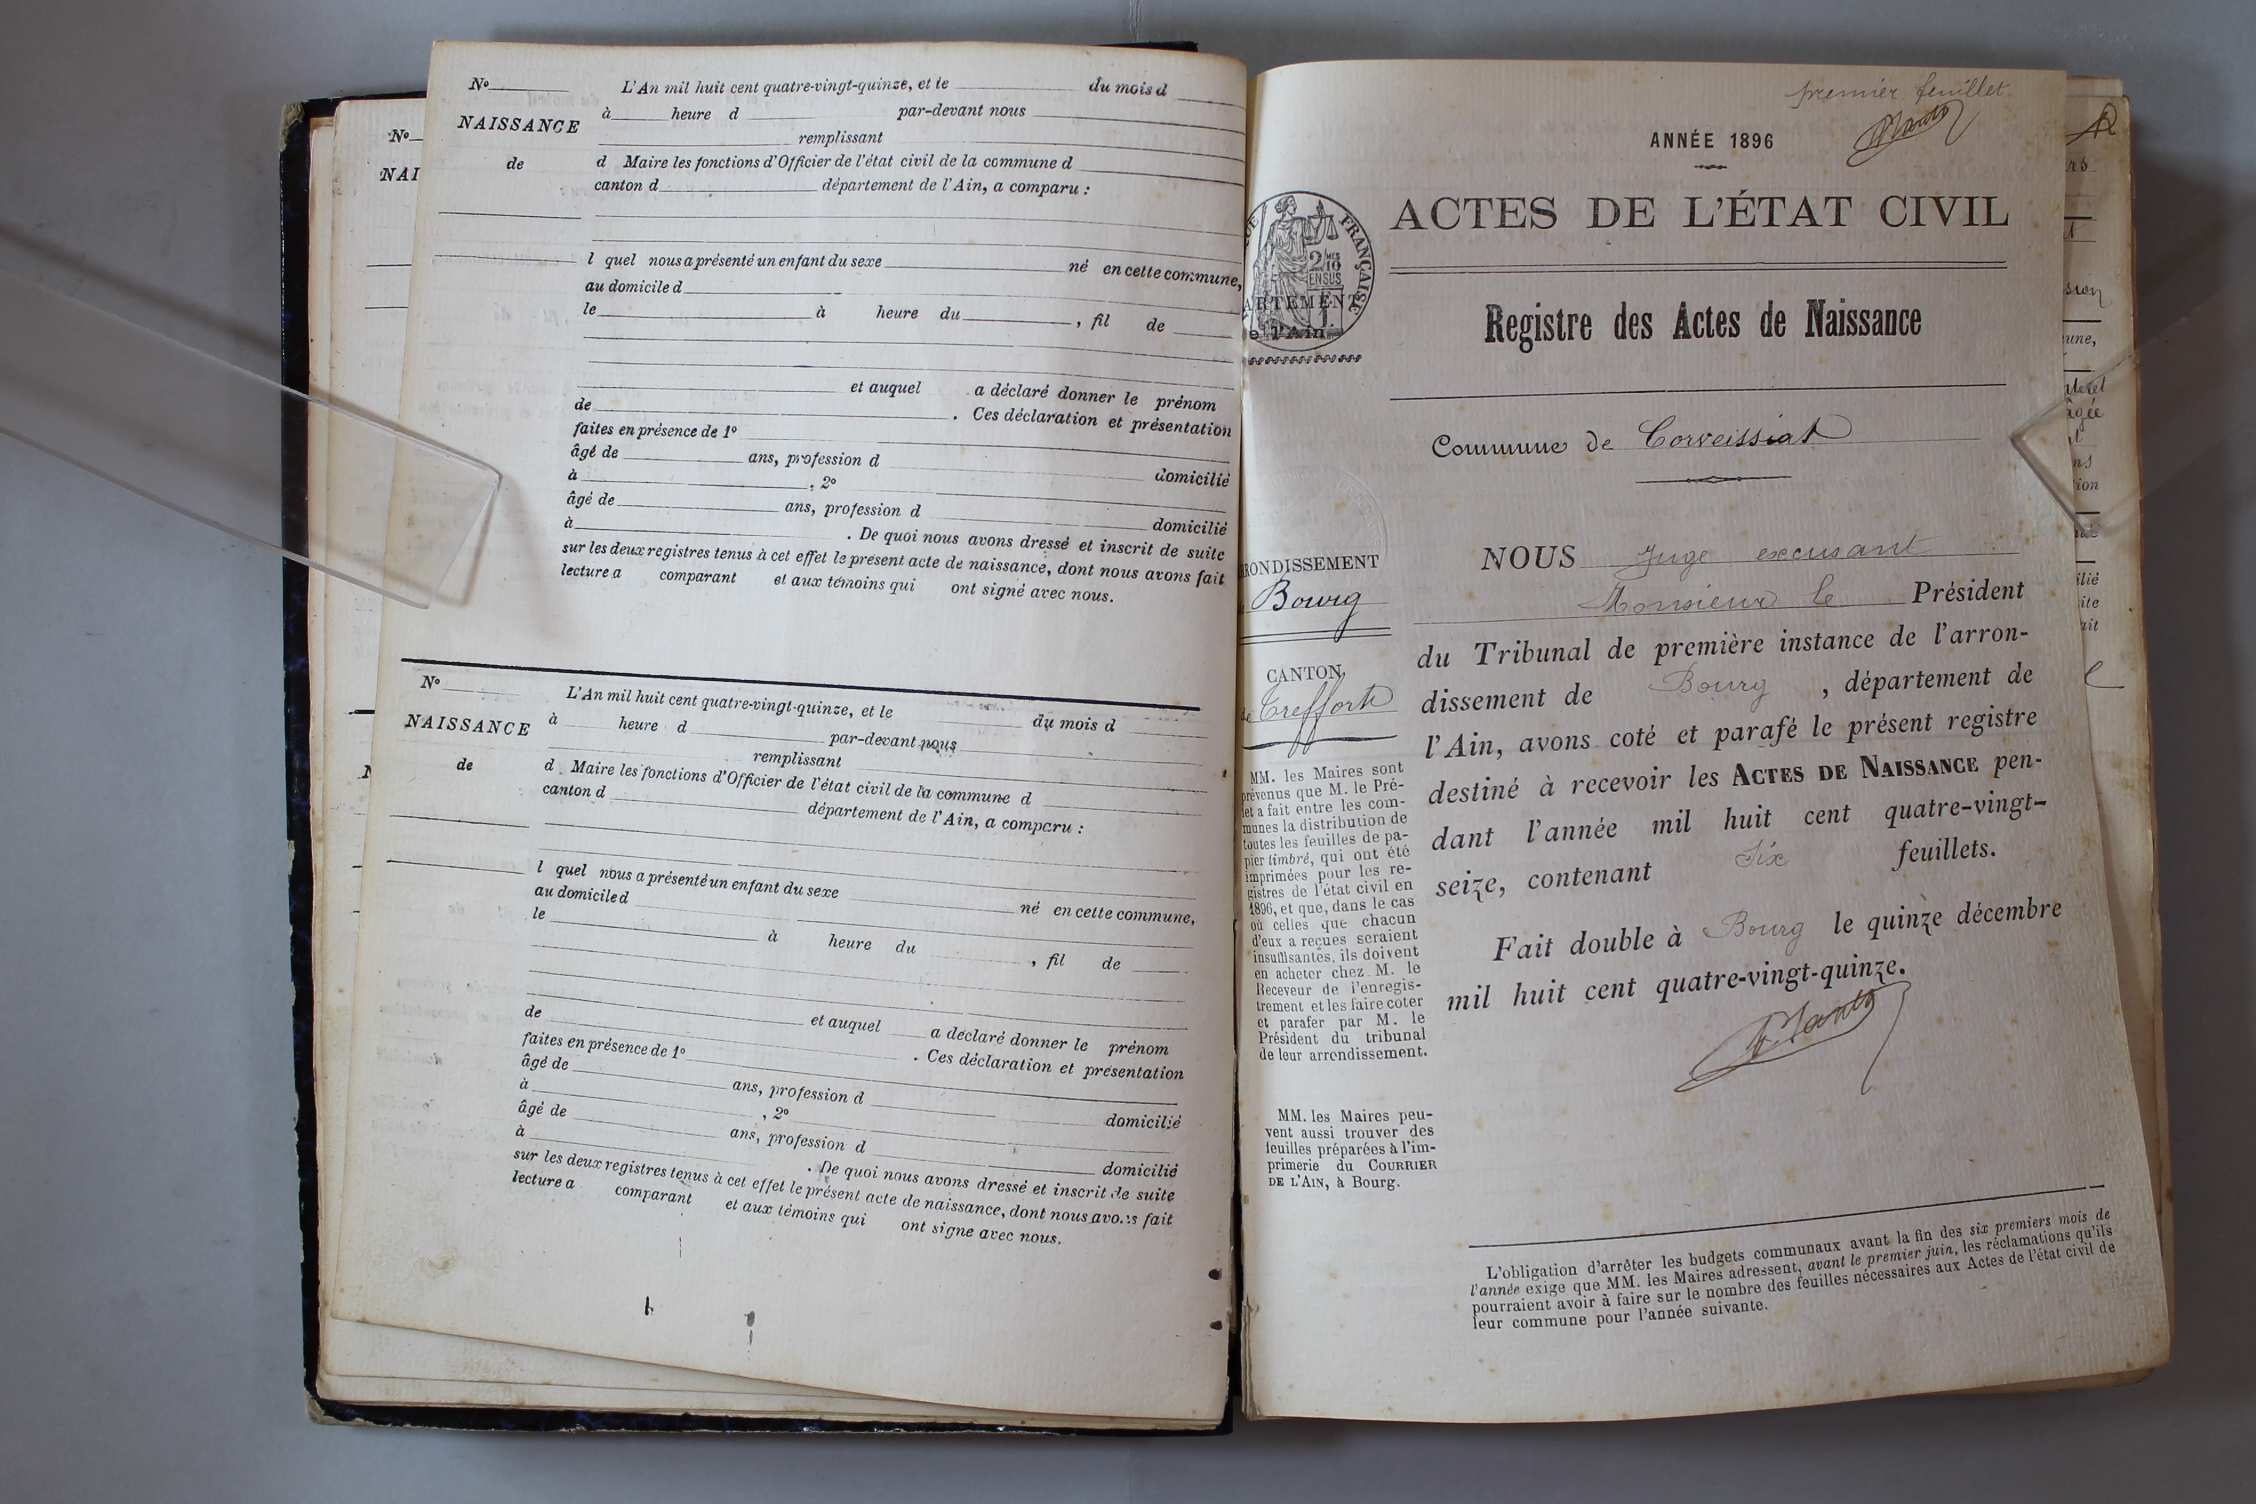 N°
NAI
N° L'An mil huit cent quatre-vingt-quinze, et le du mois d
NAISSANCE
de
à heure d par-devant nous
remplissant
d Maire les fonctions d'Officier de l'état civil de la commune d
canton d département de l'Ain, a comparu :
l quel nous a présenté un enfant du sexe né en cette commune,
au domicile d
le à heure du , fil de
et auquel a déclaré donner le prénom
de . Ces déclaration et présentation
faites en présence de 1°
âgé de ans, profession d domicilié
à , 2°
âgé de ans, profession d domicilié
à . De quoi nous avons dressé et inscrit de suite
sur les deux registres tenus à cet effet le présent acte de naissance, dont nous avons fait
lecture a comparant et aux témoins qui ont signé avec nous.
N° L'An mil huit cent quatre-vingt-quinze, et le du mois d
NAISSANCE
de
à heure d par-devant nous
remplissant
d Maire les fonctions d'Officier de l'état civil de la commune d
canton d département de l'Ain, a comparu :
l quel nous a présenté un enfant du sexe né en cette commune,
au domicile d
le à heure du , fil de
et auquel a déclaré donner le prénom
de . Ces déclaration et présentation
faites en présence de 1°
âgé de ans, profession d domicilié
à , 2°
âgé de ans, profession d domicilié
à . De quoi nous avons dressé et inscrit de suite
sur les deux registres tenus à cet effet le présent acte de naissance, dont nous avons fait
lecture a comparant et aux témoins qui ont signé avec nous.
premier feuillet
ANNÉE 1896
ACTES DE L'ÉTAT CIVIL
FRANÇAISE
2 10
EN SUS
ARTEMENT
e l'Ain
Registre des Actes de Naissance
Commune de Corveissiat
RONDISSEMENT
Bourg
CANTON
de Treffort
MM. les Maires sont
prévenus que M. le Pré-
fet a fait entre les com-
munes la distribution de
toutes les feuilles de pa-
pier timbré, qui ont été
imprimées pour les re-
gistres de l'état civil en
1896, et que, dans le cas
où celles que chacun
d'eux a reçues seraient
insuffisantes, ils doivent
en acheter chez M. le
Receveur de l'enregis-
trement et les faire coter
et parafer par M. le
Président du tribunal
de leur arrondissement.
MM. les Maires peu-
vent aussi trouver des
feuilles préparées à l'im-
primerie du COURRIER
DE L'AIN, à Bourg.
NOUS Juge excusant
Monsieur le Président
du Tribunal de première instance de l'arron-
dissement de Bourg , département de
l'Ain, avons coté et parafé le présent registre
destiné à recevoir les ACTES DE NAISSANCE pen-
dant l'année mil huit cent quatre-vingt-
seize, contenant six feuillets.
Fait double à Bourg le quinze décembre
mil huit cent quatre-vingt-quinze.
L'obligation d'arrêter les budgets communaux avant la fin des six premiers mois de
l'année exige que MM. les Maires adressent, avant le premier juin, les réclamations qu'ils
pourraient avoir à faire sur le nombre des feuilles nécessaires aux Actes de l'état civil de
leur commune pour l'année suivante.